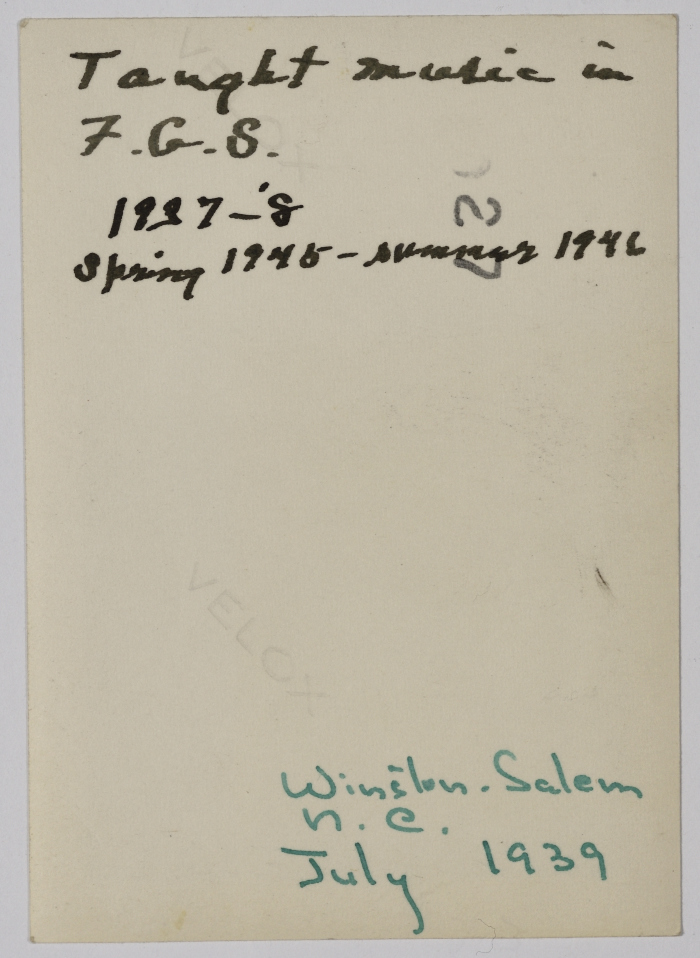 Taught music in
F.G.S.
1937-'8
Spring 1945 - summer 1946
VELOX
Winston-Salem
N.C.
July 1939